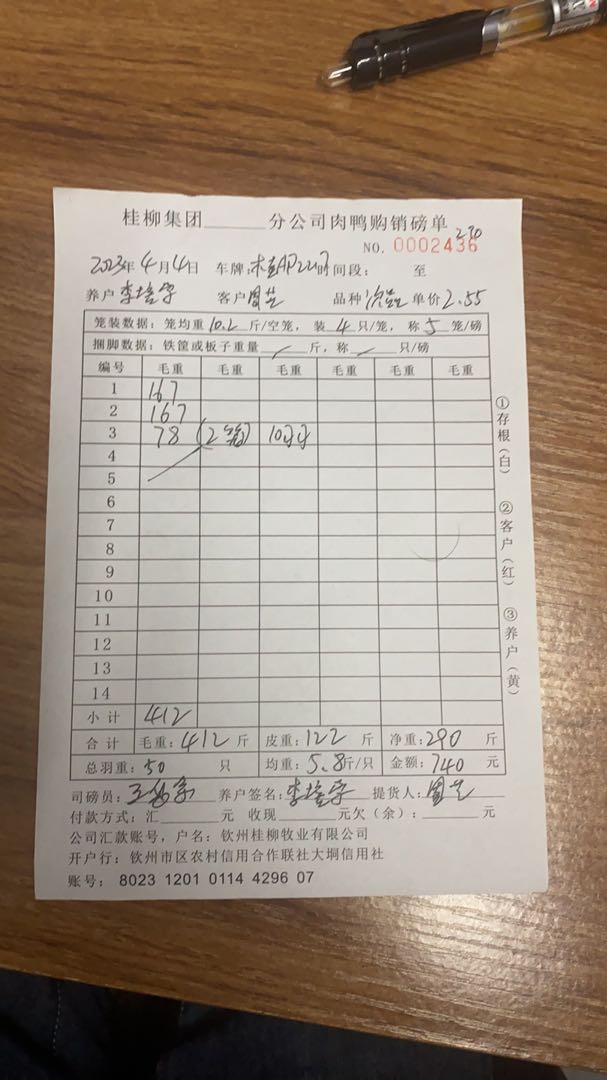 桂柳集团______分公司肉鸭购销磅单
NO. 0002436
2023年4月4日 车牌: 时间段: 至
养户 李 客户 单价 2.55 品种
笼装数据: 笼均重 10.2 斤/空笼, 装 4 只/笼, 称 5 笼/磅
捆脚数据: 铁筐或板子重量 / 斤, 称 / 只/磅
编号 毛重 毛重 毛重 毛重 毛重 毛重
1 167
2 167
3 78 (2笼)
4
5
6
7
8
9
10
11
12
13
14
小计 412
合计 毛重: 412 斤 皮重: 122 斤 净重: 290 斤
总羽重: 50 只 均重: 5.8 斤/只 金额: 740 元
司磅员: 王 养户签名: 李 提货人:
付款方式: 汇______元 收现______元欠(余): ______元
公司汇款账号, 户名: 钦州桂柳牧业有限公司
开户行: 钦州市区农村信用合作联社大垌信用社
账号: 8023 1201 0114 4296 07
①存根(白)
②客户(红)
③养户(黄)